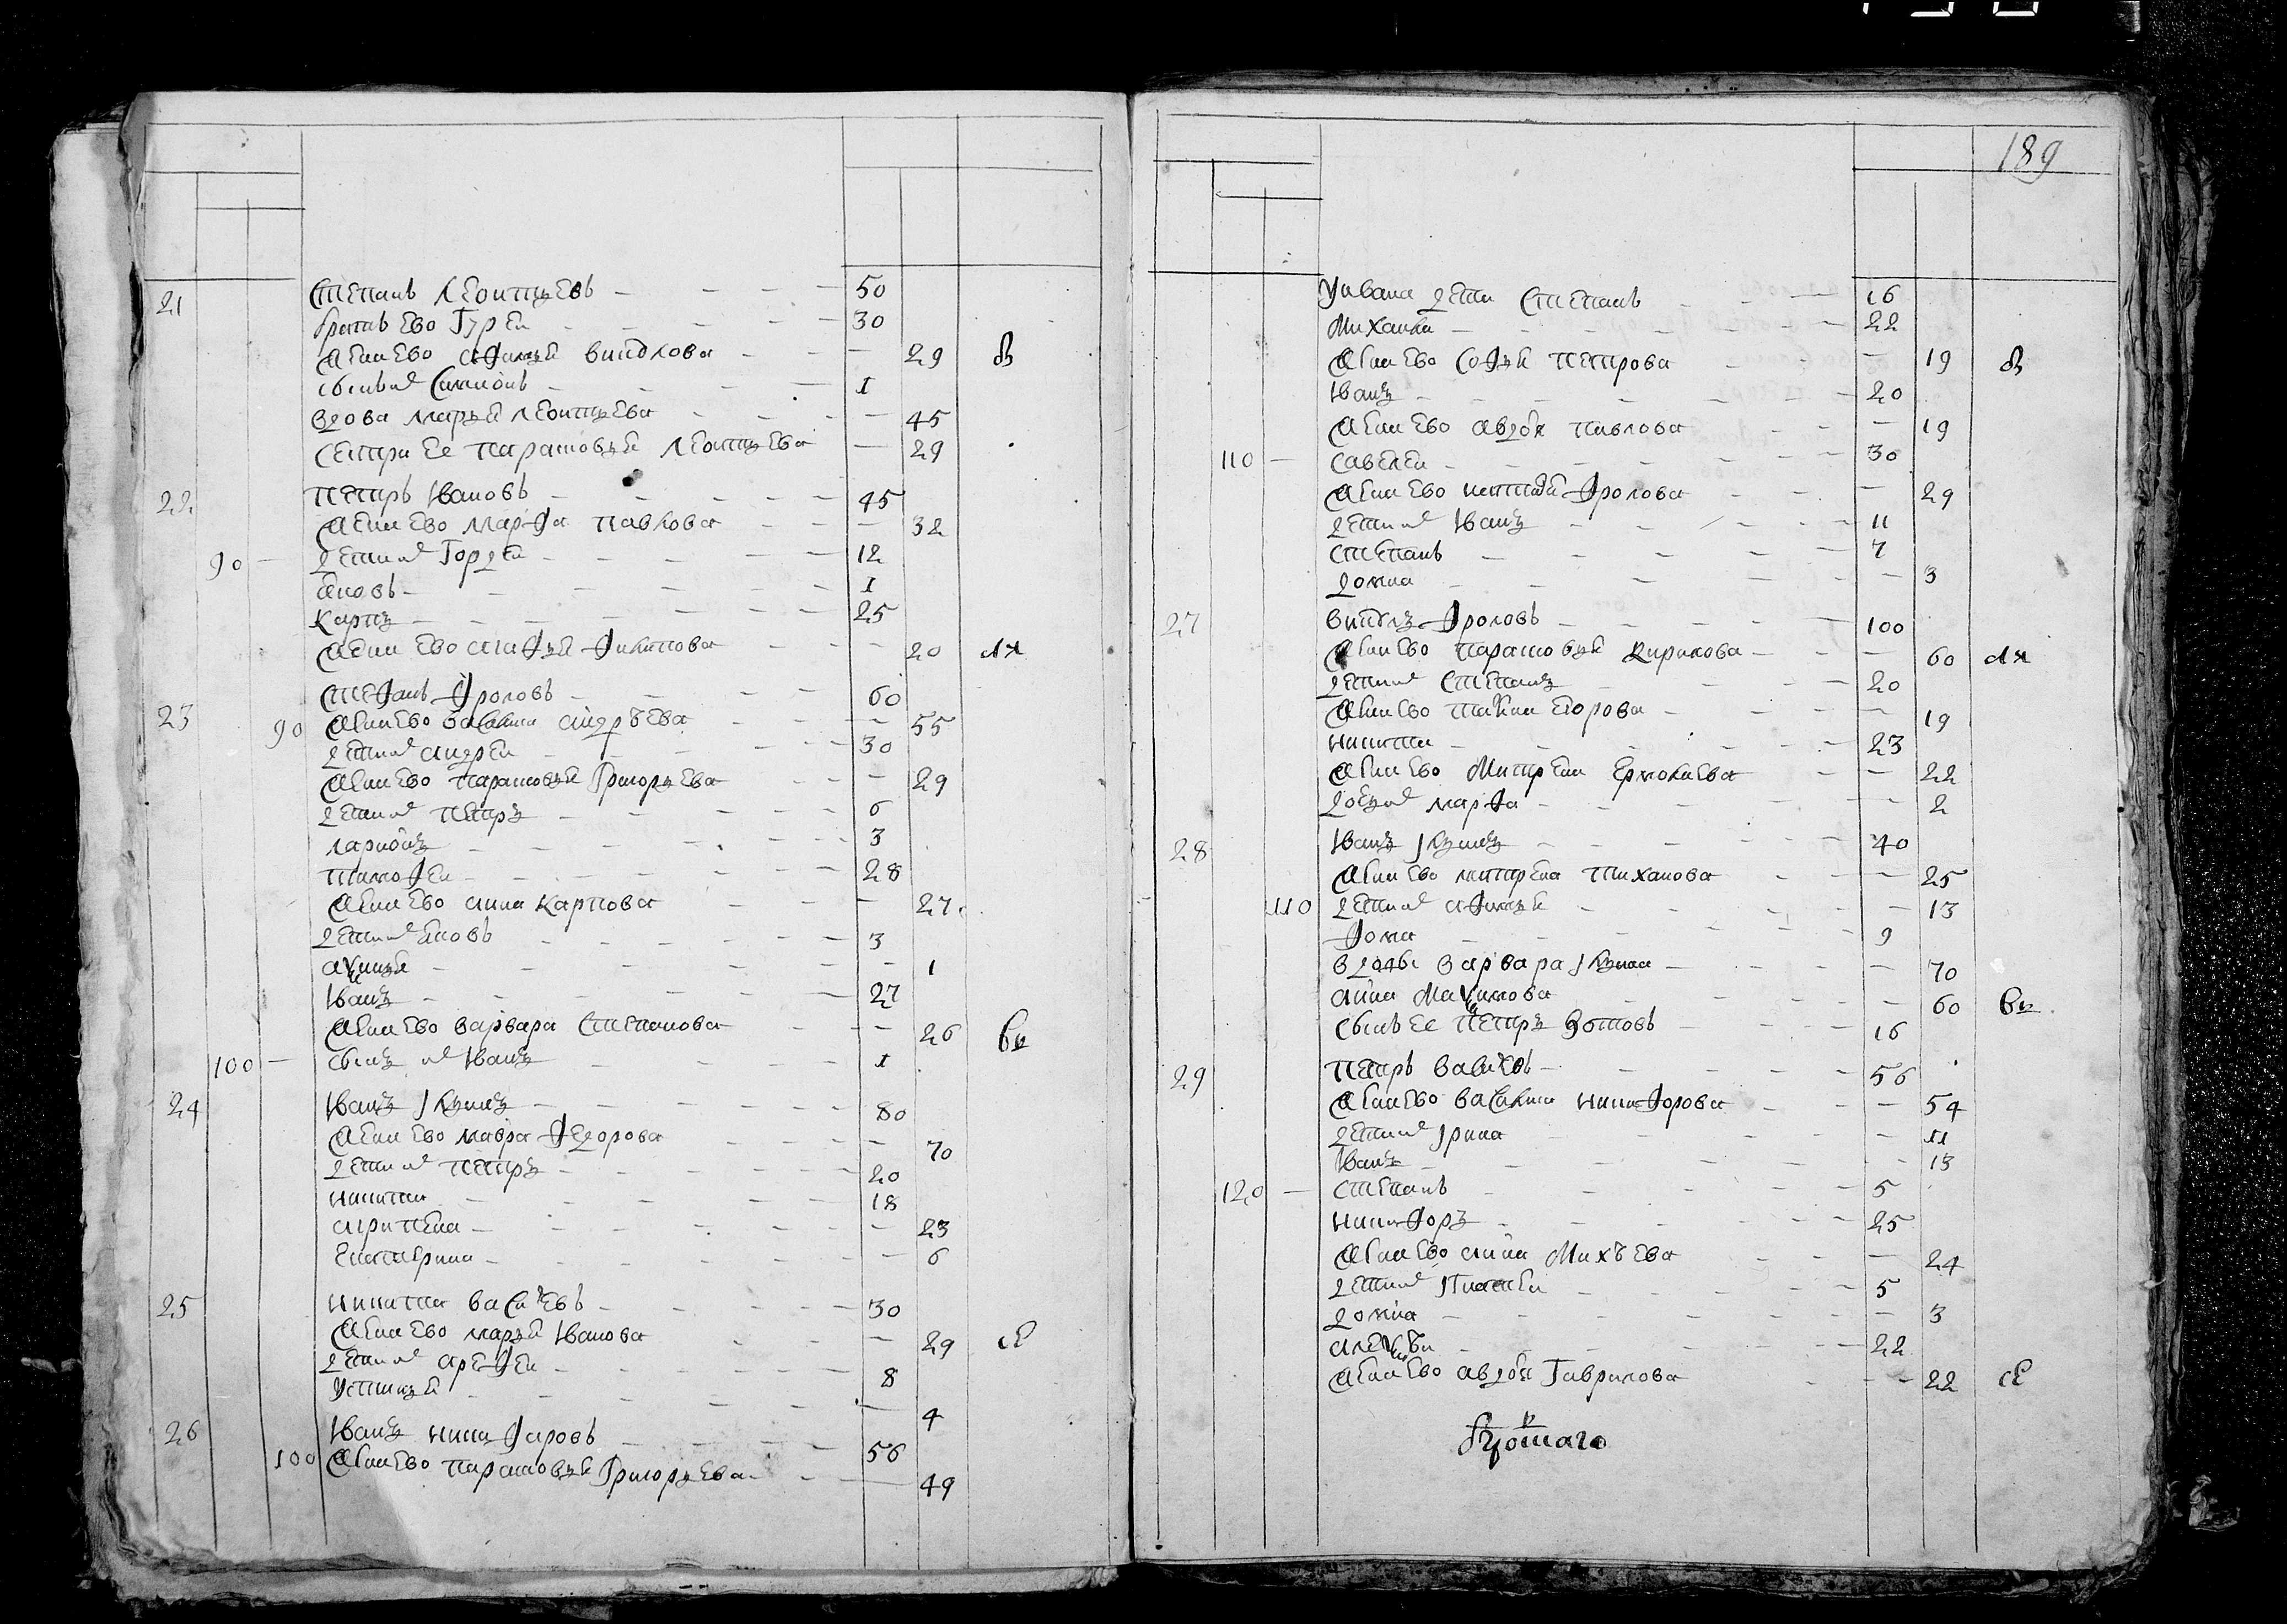 21 Степанъ Леонтьевъ 50
братъ ево Гурей 30
жена ево афимья 29 в
сынъ и͏хъ Симионъ 1
вдова марья леонтьева 45
сестра ее парасковья леонтьева 29
22 петръ Ивановъ 45
жена ево марфа павлова 32
90 дети ихъ Гордей 12
яковъ 1
карпъ 25
жена ево филипова 20 ля
23 Стефанъ Фроловъ 60
90 жена ево василиса андрѣева 55
дети ихъ андрей 30
жена ево парасковья Григорьева 29
дети ихъ петръ 6
лариōнъ 3
тимофей 28
жена ево анна карпова 27
дети ихъ яковъ 3
аксинья 1
Иванъ 27
жена ево варвара Степанова 26 ви
100 сынъ ихъ Иванъ 1
24 Иванъ Кузминъ 80
жена ево мавра Федорова 70
дети ихъ петръ 20
никита 18
агрипена 23
екатерина 6
25 никита васильевъ 30
жена ево марья Иванова 29 се
дети ихъ арефей 8
Устинья 4
26 Иванъ никифаровъ 56
100 жена ево парасковья Григорьева 49
189
Уивана дети Степанъ 16
Михаила 22
жена ево Софья петрова 19 в
Иванъ 20
жена ево авдотя павлова 19
110 савелей 30
жена ево наталья Фролова 29
дети ихъ Иванъ 11
степанъ 7
домна 3
27 Фроловъ 100
жена ево парасковья Кирилова 60 ля
дети ихъ Степанъ 20
жена ево егорова 19
никита 23
жена ево Митрена ермолаева 22
дочь ихъ марфа 2
28 Иванъ Кузминъ 40
жена ево матрена тиханова 25
110 дети ихъ афимья 13
Фома 9
вдовы варвара Кузмина 70
анна Максимова 60 ви
сынъ ее петръ Зотовъ 16
29 петръ васильевъ 56
жена ево василиса никифорова 54
дети ихъ Ирина 11
Иванъ 13
120 степанъ 5
никифоръ 25
жена ево анна Михѣева 24
дети ихъ 5
домна 3
алексѣй 22
жена ево авдотя Гаврилова 22 се